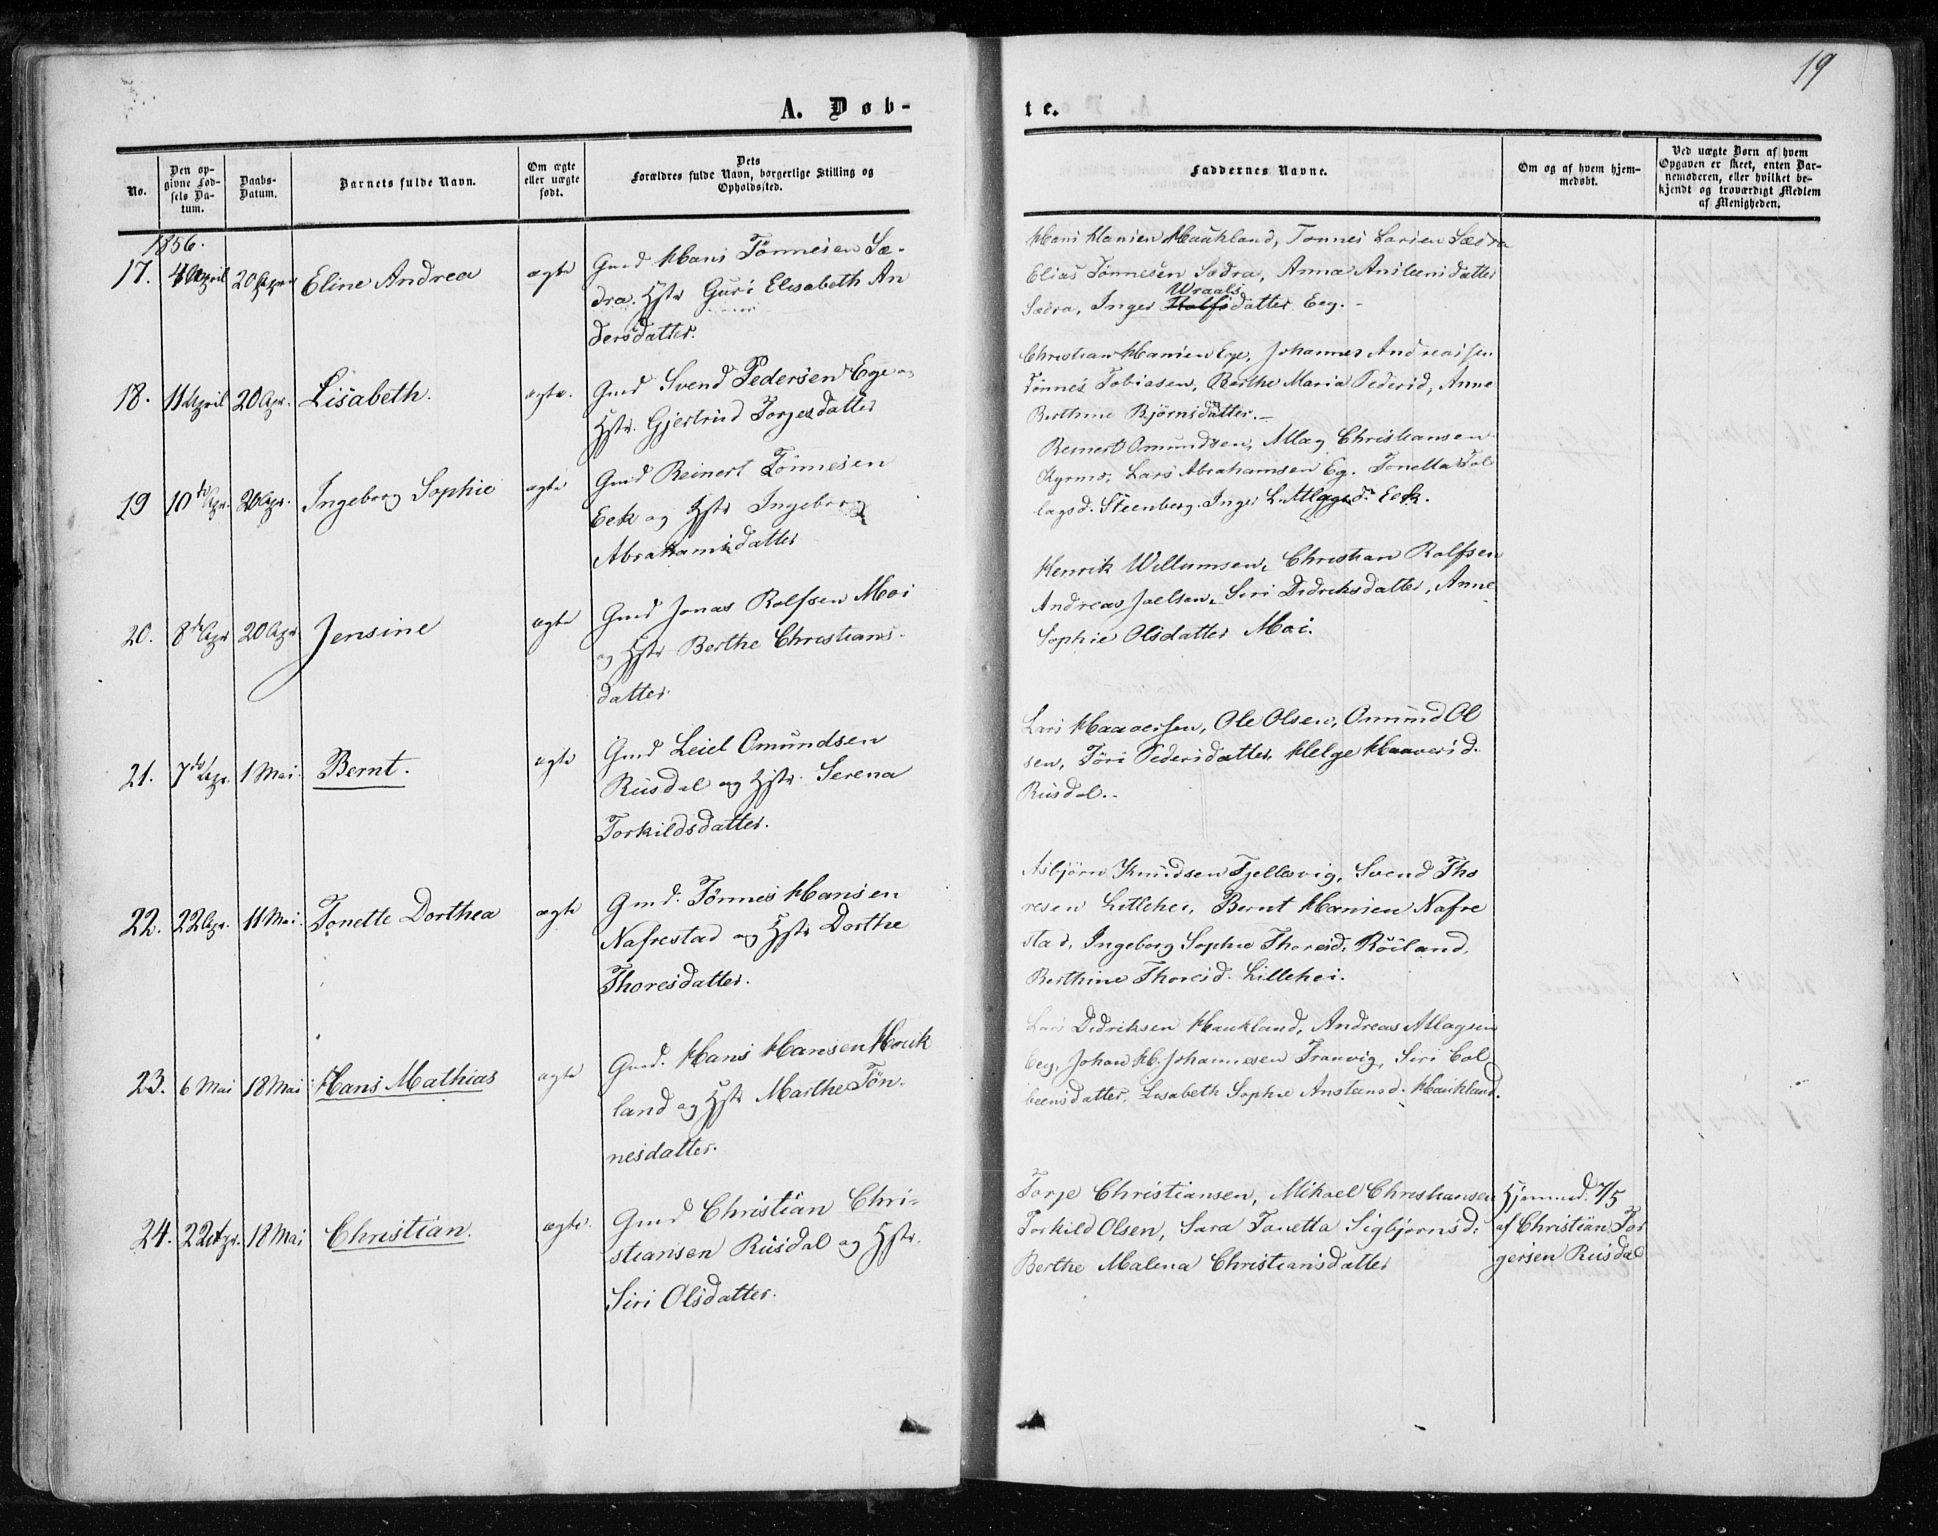 19
A. Døb-
te.
No.
Den op-
givne Fød-
sels Da-
tum.
Daabs-
Datum.
Barnets fulde Navn.
Om ægte
eller uægte
født.
Dets
Forældres fulde Navn, borgerlige Stilling og
Opholdssted.
Faddernes Navne.
Om og af hvem hjem-
medøbt.
Ved uægte Børn af hvem
Opgaven er skeet, enten Bar-
nemoderen, eller hvilket be-
kjendt og troværdigt Medlem
af Menigheden.
1856.
17. 4 April 20 Apr. Eline Andrea ægte
Gmd Hans Tönnesen Sæ-
dra. Hstr Guri Elisabeth An
dersdatter.
Hans Hansen Haukland, Tonnes Larsen Sædra
Elias Tönnesen Sædra, Anna Anstensdatter
Wraals
Sædra, Inger Rolfsdatter Eeg.-
18. 11 April 20 Apr. Lisabeth. ægte.
Gmd Svend Pedersen Ege og
Hstr. Gjertrud Torjesdatter
Christian Hansen Ege, Johannes Andreassen
Tönnes Tobiasen, Berthe Maria Pedersd, Anne
Berthine Björnsdatter.-
19 10de Apr. 20 Apr. Ingeborg Sophie ægte
Gmd Reinert Tönnesen
Eek og Hstr Ingeborg
Abrahamsdatter
Reinert Omundsen, Atlag Christiansen
Kyrmo, Lars Abrahamsen Eg. Tonetta Tol
lagsd. Steenberg. Inger L. Atlagsd. Eek.
20. 8de Apr 20 Apr Jensine ægte
Gmd Jonas Rolfsen Moi
og Hstr Berthe Christians-
datter.
Henrik Willumsen, Christian Rolfsen
Andreas Joelsen, Siri Didriksdatter, Anne
Sophie Olsdatter Moi.
21. 7de Apr. 1 Mai. Bernt. ægte
Gmd Leiel Omundsen
Rusdal og Hstr. Serena
Torkildsdatter.
Lars Haaversen, Ole Olsen, Omund Ol
sen, Töri Pedersdatter, Helge Haaversd.
Rusdal.-
22. 22 Apr. 11 Mai. Tonette Dorthea ægte
Gmd. Tönnes Hansen
Nafrestad og Hstr Dorthe
Thoresdatter.
Asbjörn Knudsen Fjellesvig, Svend Tho
resen Litlehei, Bernt Hansen Nafre
stad, Ingeborg Sophie Thoresd. Röiland,
Berthine Thoresd. Lillehei.
23. 6 Mai 18 Mai Hans Mathias ægte
Gmd. Hans Hansen Houk
land og Hstr Marthe Tön-
nesdatter.
Lars Didriksen Haukland, Andreas Atlagsen
Eeg, Johan H. Johannesen Tranvig, Siri Col
beensdatter, Lisabeth Sophie Anstensd. Haukland.
24. 22 Apr. 18 Mai Christian. ægte.
Gmd Christian Chri-
stiansen Rusdal og Hstr.
Siri Olsdatter.
Torje Christiansen, Mikael Christiansen
Torkild Olsen, Sara Tonetta Sigbjørnsd:
Berthe Malena Christiansdatter
Hjemmed. 7/5
af Christian Tor
gersen Rusdal